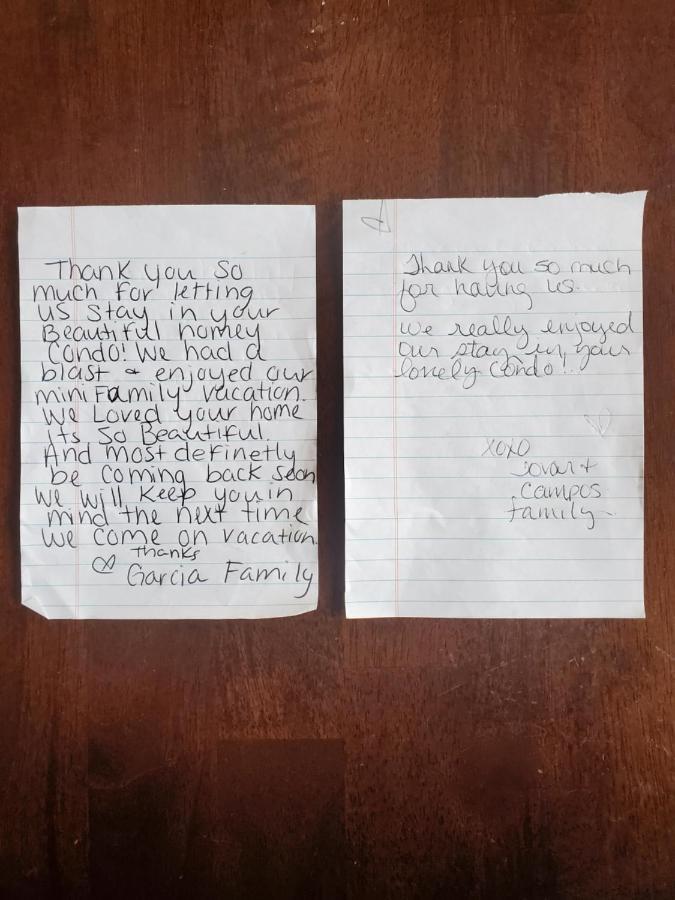 Thank you so
much for letting
us stay in your
Beautiful homey
Condo! We had a
blast & enjoyed our
mini Family vacation.
We Loved your home
Its So Beautiful.
And most definetly
be coming back soon
We will Keep you in
mind the next time
We come on vacation.
thanks
Garcia Family
Thank you so much
for having us.
We really enjoyed
our stay in your
lovely Condo!!
XOXO
Campos
family